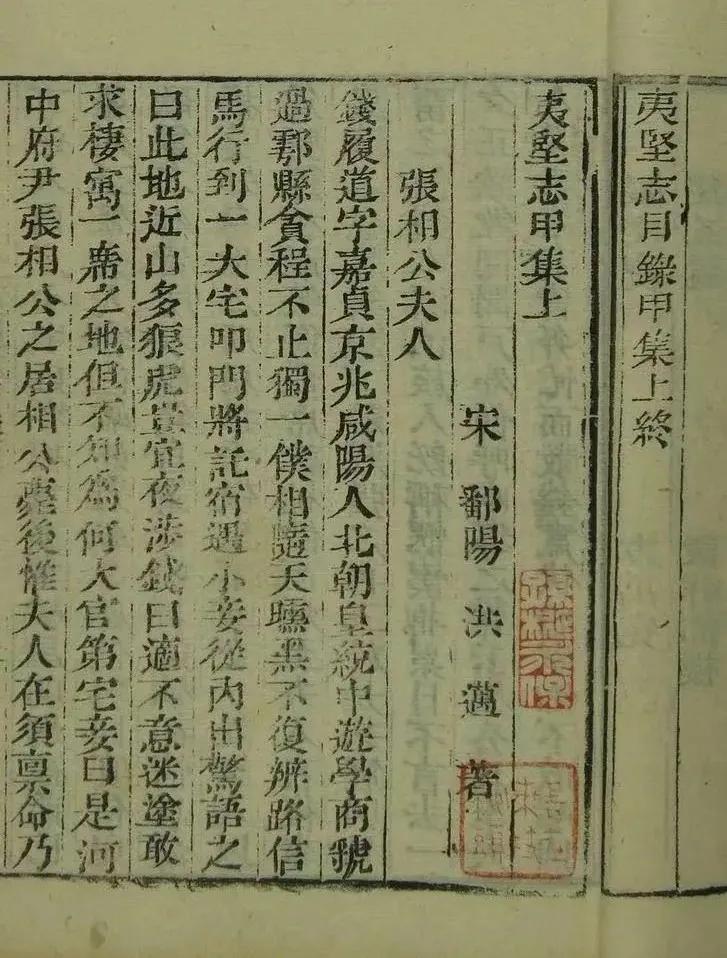 夷堅志目錄甲集上終
夷堅志甲集上
宋 鄱陽 洪邁 著
張相公夫人
錢履道字嘉貞京兆咸陽人北朝皇統中遊學商虢
過鄠縣貪程不止獨一僕相隨天曛黑不復辨路信
馬行到一大宅叩門將託宿遇小妾從內出驚語之
曰此地近山多狼虎豈宜夜涉錢曰適不意迷塗敢
求棲寓一席之地但不知為何大官第宅妾曰是河
中府尹張相公之居相公薨後惟夫人在須稟命乃